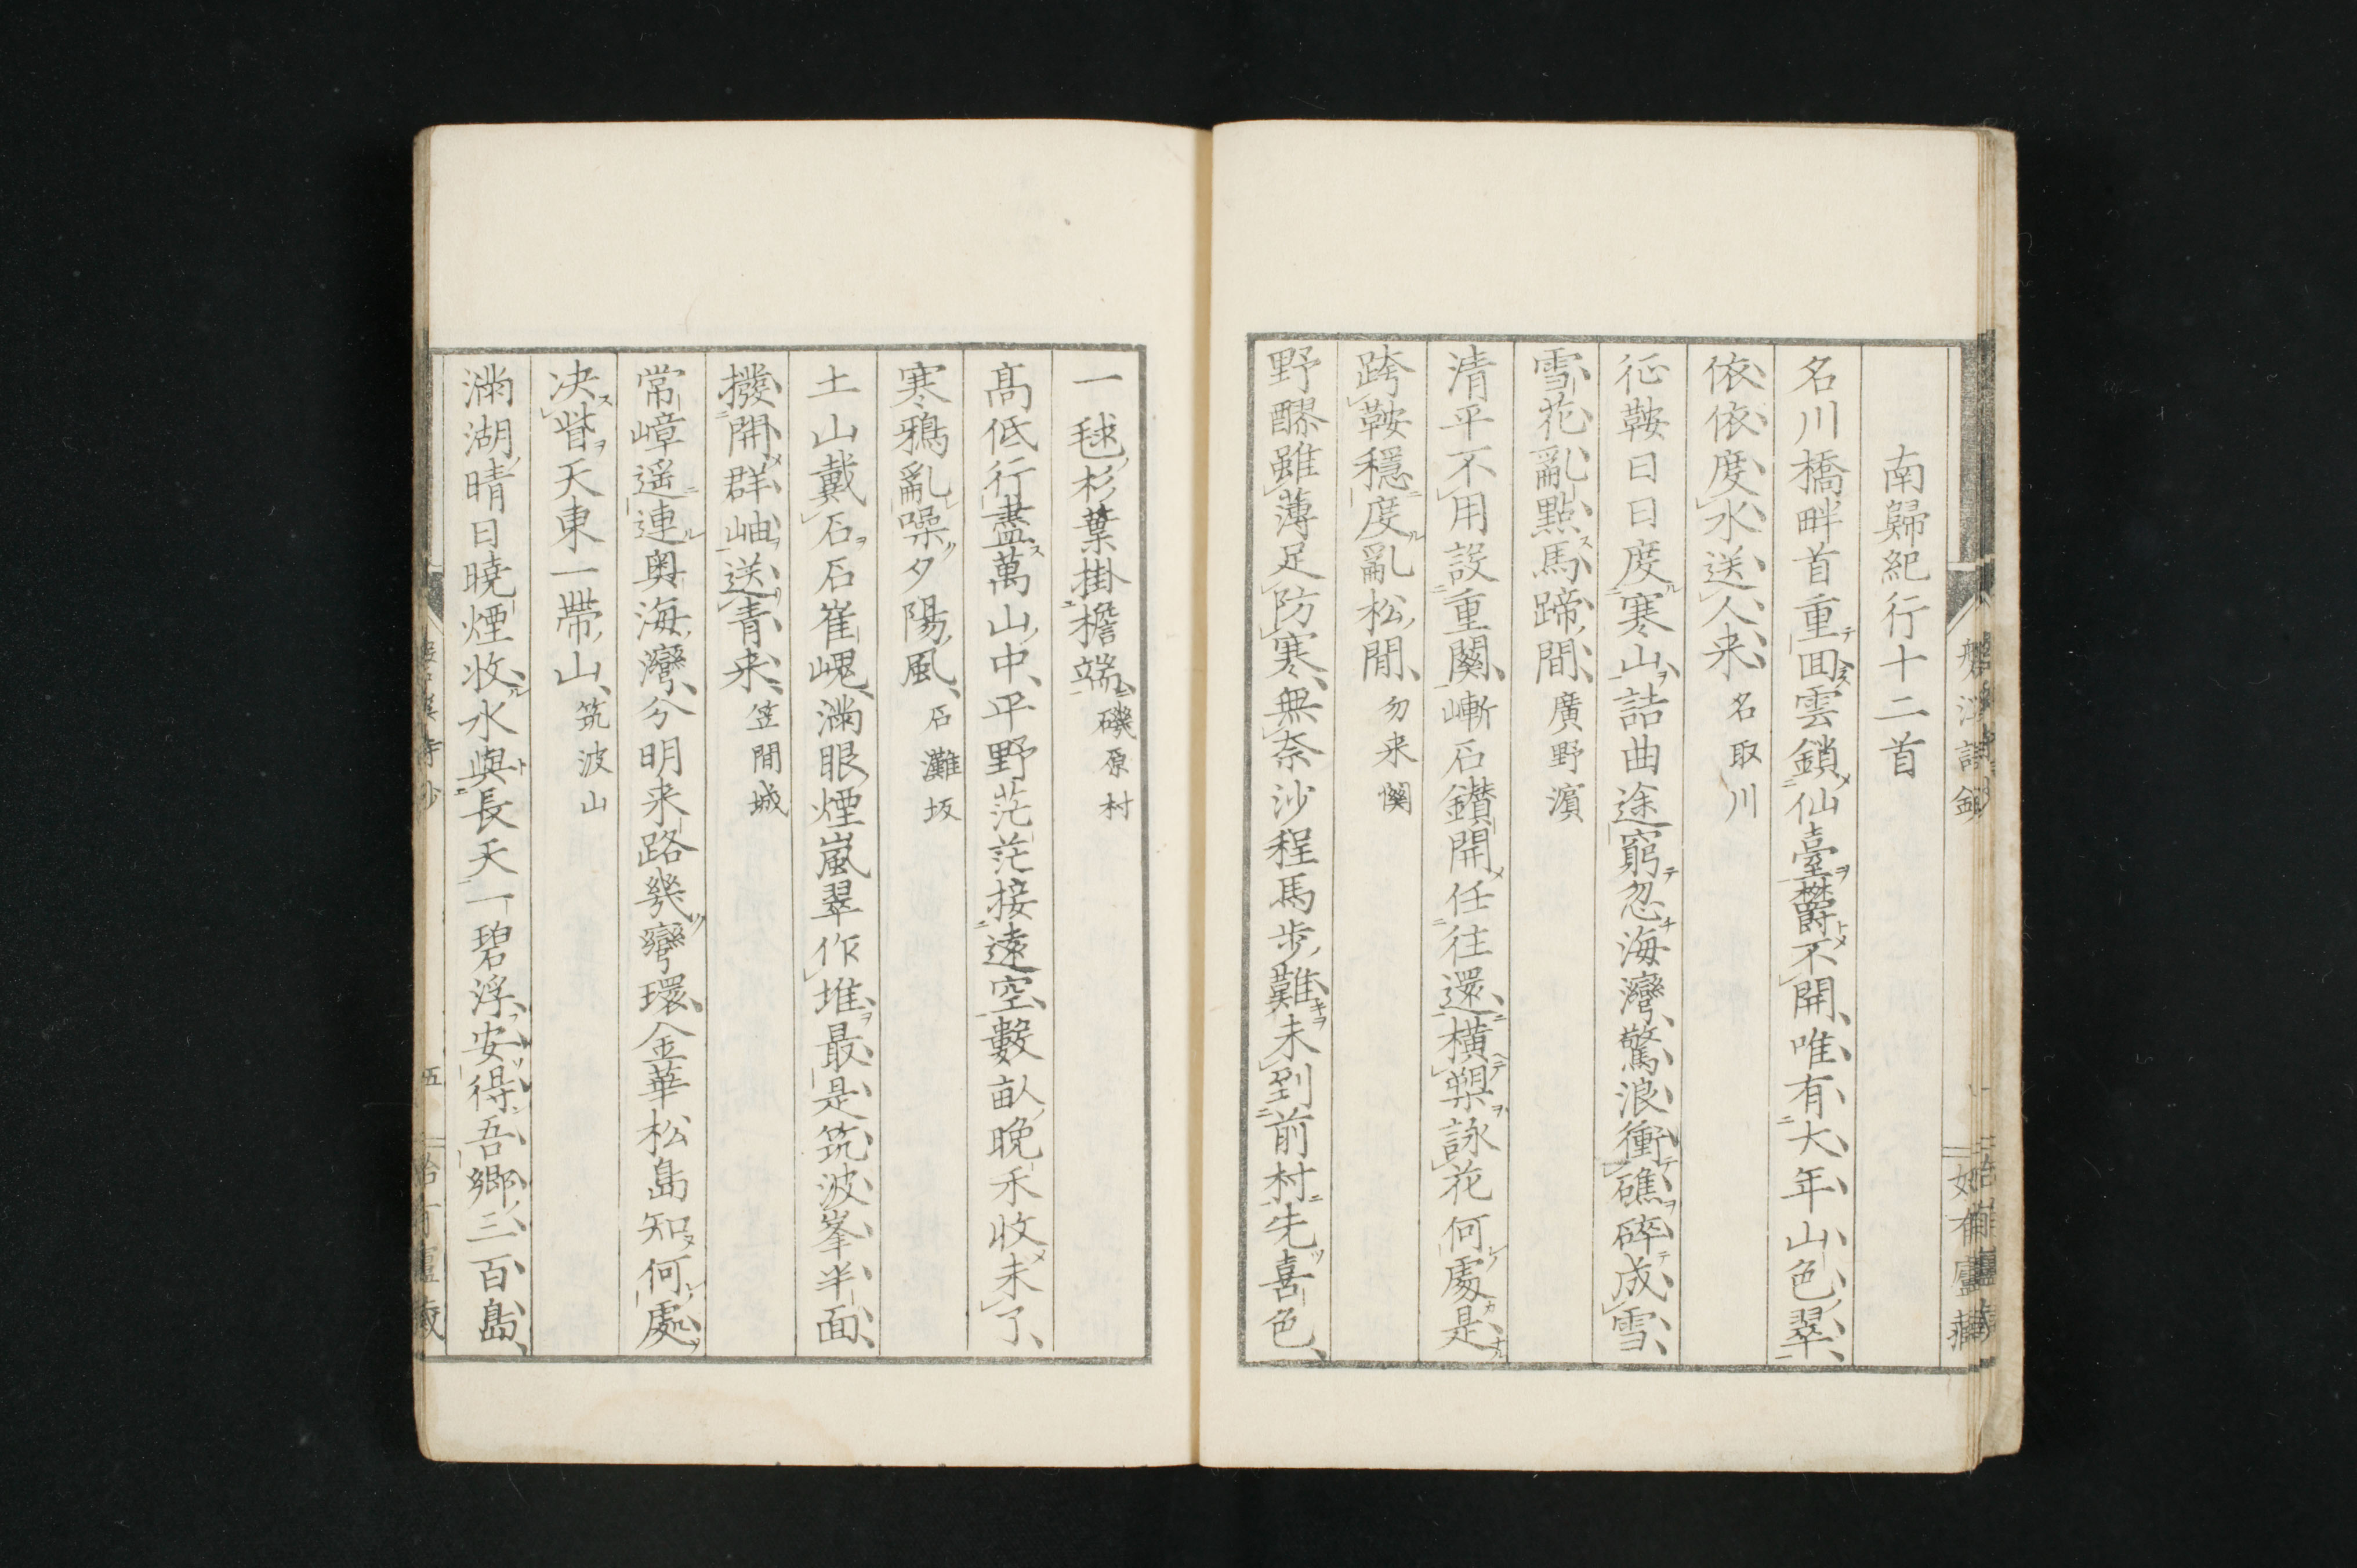 南歸紀行十二首
名川橋畔首重囬雲鎖仙臺欝不開唯有大年山色翠
依依度水送人来名取川
征鞍日日度寒山詰曲途窮忽海灣驚浪衝礁碎成雪
雪花亂點馬蹄間廣野濵
清平不用設重關嶃石鑽開任往還横槊詠花何處是
跨鞍穩度亂松間勿来関
野醪雖薄足防寒無奈沙程馬歩難未到前村先喜色
一毬杉葉掛檐端磯原村
髙低行盡萬山中平野茫茫接遠空數畝晩禾收未了
寒鴉亂噪夕陽風石灘坂
土山戴石石崔嵬滿眼煙嵐翠作堆最是筑波峯半面
撥開群岫送青来笠間城
常嶂遥連奥海灣分明来路幾彎環金華松島知何處
决眥天東一帶山筑波山
滿湖晴日曉煙收水與長天一碧浮安得吾郷三百島
五